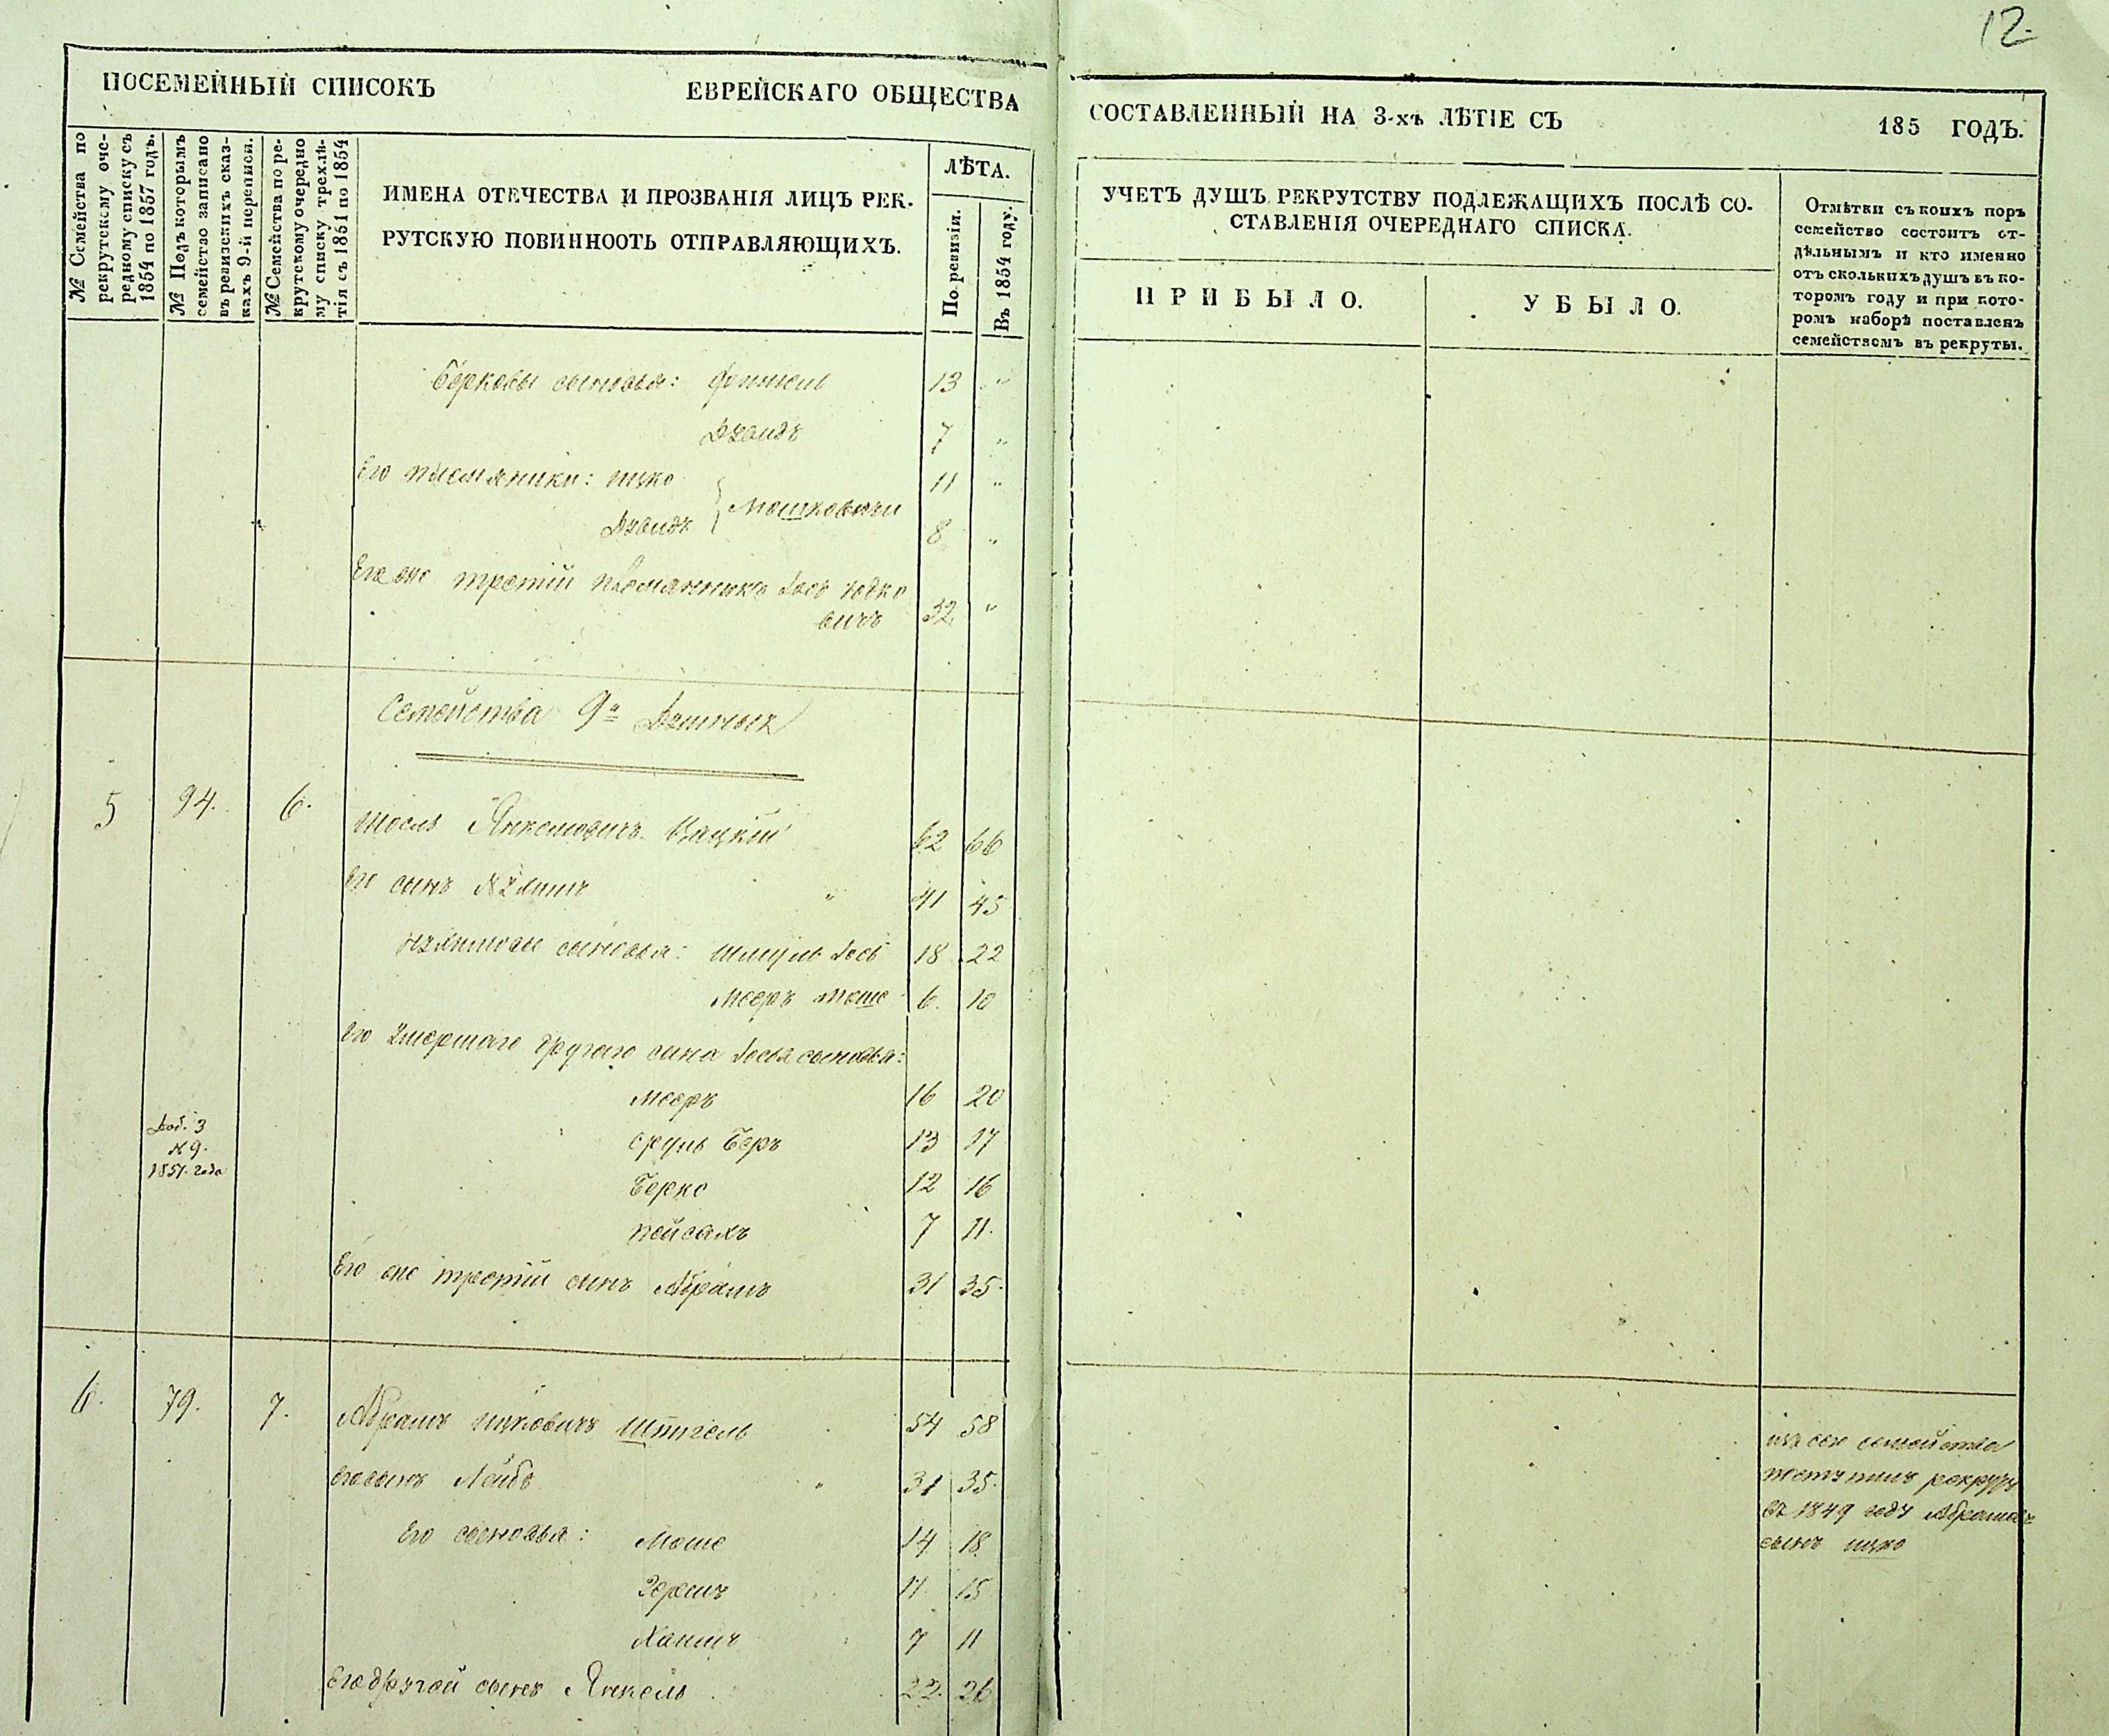 12.
ПОСЕМЕЙНЫЙ СПИСОКЪ ЕВРЕЙСКАГО ОБЩЕСТВА
СОСТАВЛЕННЫЙ НА 3-хъ ЛѢТІЕ СЪ 185 ГОДЪ.
№ Семейства по
рекрутскому оче-
редному списку съ
1854 по 1857 годъ.
№ Подъ которымъ
семейство записано
въ ревизскихъ сказ-
кахъ 9-й переписи.
№ Семейства по ре-
крутскому очередно
му списку трехлѣ-
тія съ 1851 по 1854
ИМЕНА ОТЕЧЕСТВА И ПРОЗВАНІЯ ЛИЦЪ РЕК-
РУТСКУЮ ПОВИННОСТЬ ОТПРАВЛЯЮЩИХЪ.
ЛѢТА.
По ревизіи.
Въ 1854 году
УЧЕТЪ ДУШЪ РЕКРУТСТВУ ПОДЛЕЖАЩИХЪ ПОСЛѢ СО-
СТАВЛЕНІЯ ОЧЕРЕДНАГО СПИСКА.
ПРИБЫЛО.
УБЫЛО.
Отмѣтки съ коихъ поръ
семейство состоитъ от-
дѣльнымъ и кто именно
отъ сколькихъ душъ въ ко-
торомъ году и при кото-
ромъ наборѣ поставленъ
семействомъ въ рекруты.
Берковы сыновья: 13 "
Давидъ 7 "
Его племяники: Ицко 11 "
Давидъ } Мошковичи 8 "
Его же третій племянникъ Іось Юдко
вичъ 32 "
Семейства 9и Душныя
5 94. 6. Янкелювичъ 62 66
Его сынъ " 41 45
сыновья: Шмуль Іось 18 22
Мееръ Моше 6. 10
Его умершаго другаго сына Іося сыновья:
Мееръ 16 20
Доб. 3
№ 9.
1851. года
Сруль Беръ 13 17
Берко 12 16
Пейсахъ 7 11.
Его же третій сынъ Абрамъ 31 35.
6. 79. 7. Абрамъ Ицковичъ Штигель 54 58
Его сынъ Лейбъ " 31 35.
Его сыновья: Моше 14 18.
Гершъ 11. 15
Хаимъ 7 11
Его другой сынъ Янкель 22. 26
изъ сего семейства
поступилъ рекрутъ
въ 1849 году Абрамовъ
сынъ Ицко